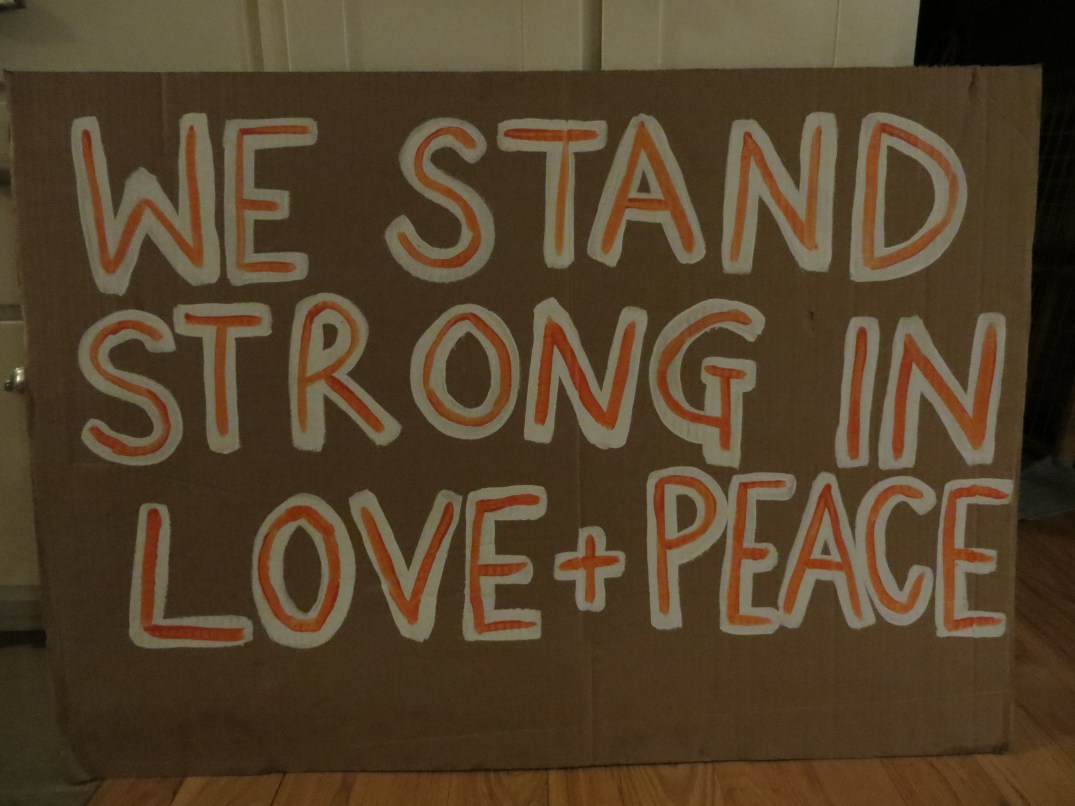 WE STAND
STRONG IN
LOVE + PEACE